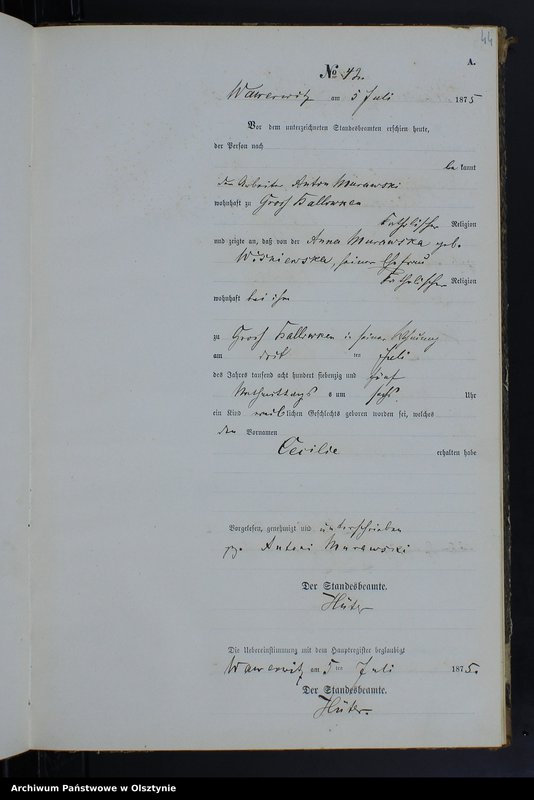 44
A.
No 42.
Wawerwitz am 5 Juli 1875
Vor dem unterzeichneten Standesbeamten erschien heute,
der Person nach
be kannt
der Arbeiter Anton Murawski
wohnhaft zu Gross Ballowken
katholischer Religion
und zeigte an, daß von der Anna Murawska geb.
Wisniewska, seiner Ehefrau
katholischer Religion
wohnhaft bei ihm
zu Gross Ballowken in seiner Wohnung
am ten Juli
des Jahres tausend acht hundert siebenzig und fünf
Nachmittags s um sechs Uhr
ein Kind weib lichen Geschlechts geboren worden sei, welches
den Vornamen
Cecilie erhalten habe
Vorgelesen, genehmigt und unterschrieben
gez. Antoni Murawski
Der Standesbeamte.
Hüter
Die Uebereinstimmung mit dem Hauptregister beglaubigt
Wawerwitz am 5 ten Juli 1875.
Der Standesbeamte.
Hüter.
Archiwum Państwowe w Olsztynie